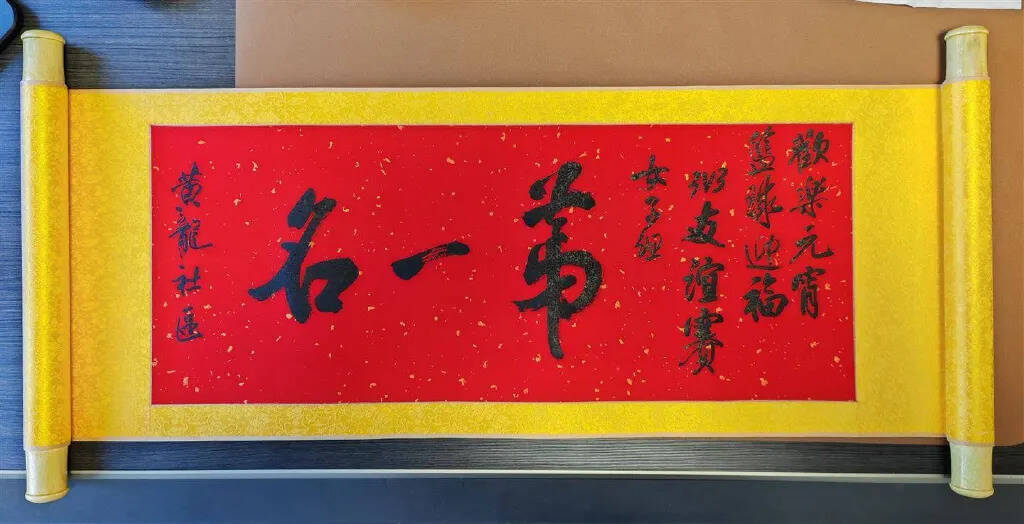 歡樂元宵
籃球迎福
3V3友誼賽
女子組
第一名
黄龍社區